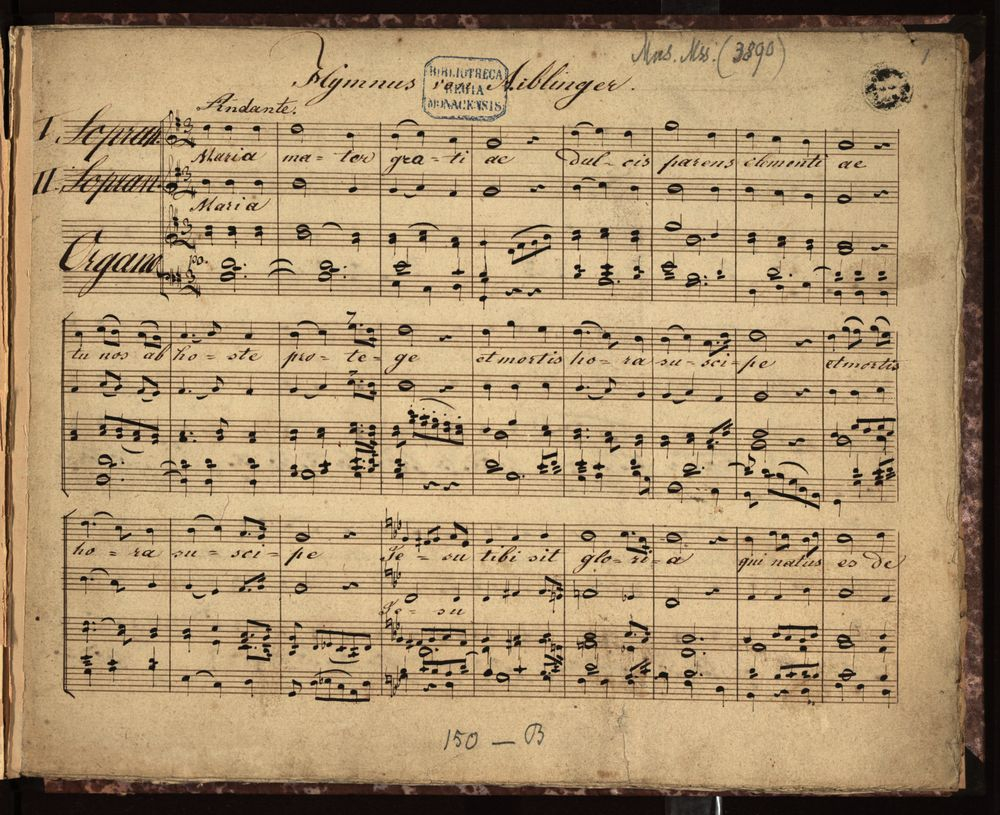 Mus. Mss. (3890)
1
Hymnus von Aiblinger.
BIBLIOTHECA
REGIA
MONACENSIS
Andante.
I. Sopran.
Maria ma=ter gra-ti ae dul-cis parens clementi ae
II. Sopran.
Maria
Organo
po.
tu nos ab ho=ste pro=te=ge et mortis ho=ra su=sci=pe et mortis
ho=ra su=sci=pe Je=su tibi sit glo=ri=a qui natus es de
Je=su
150 — B